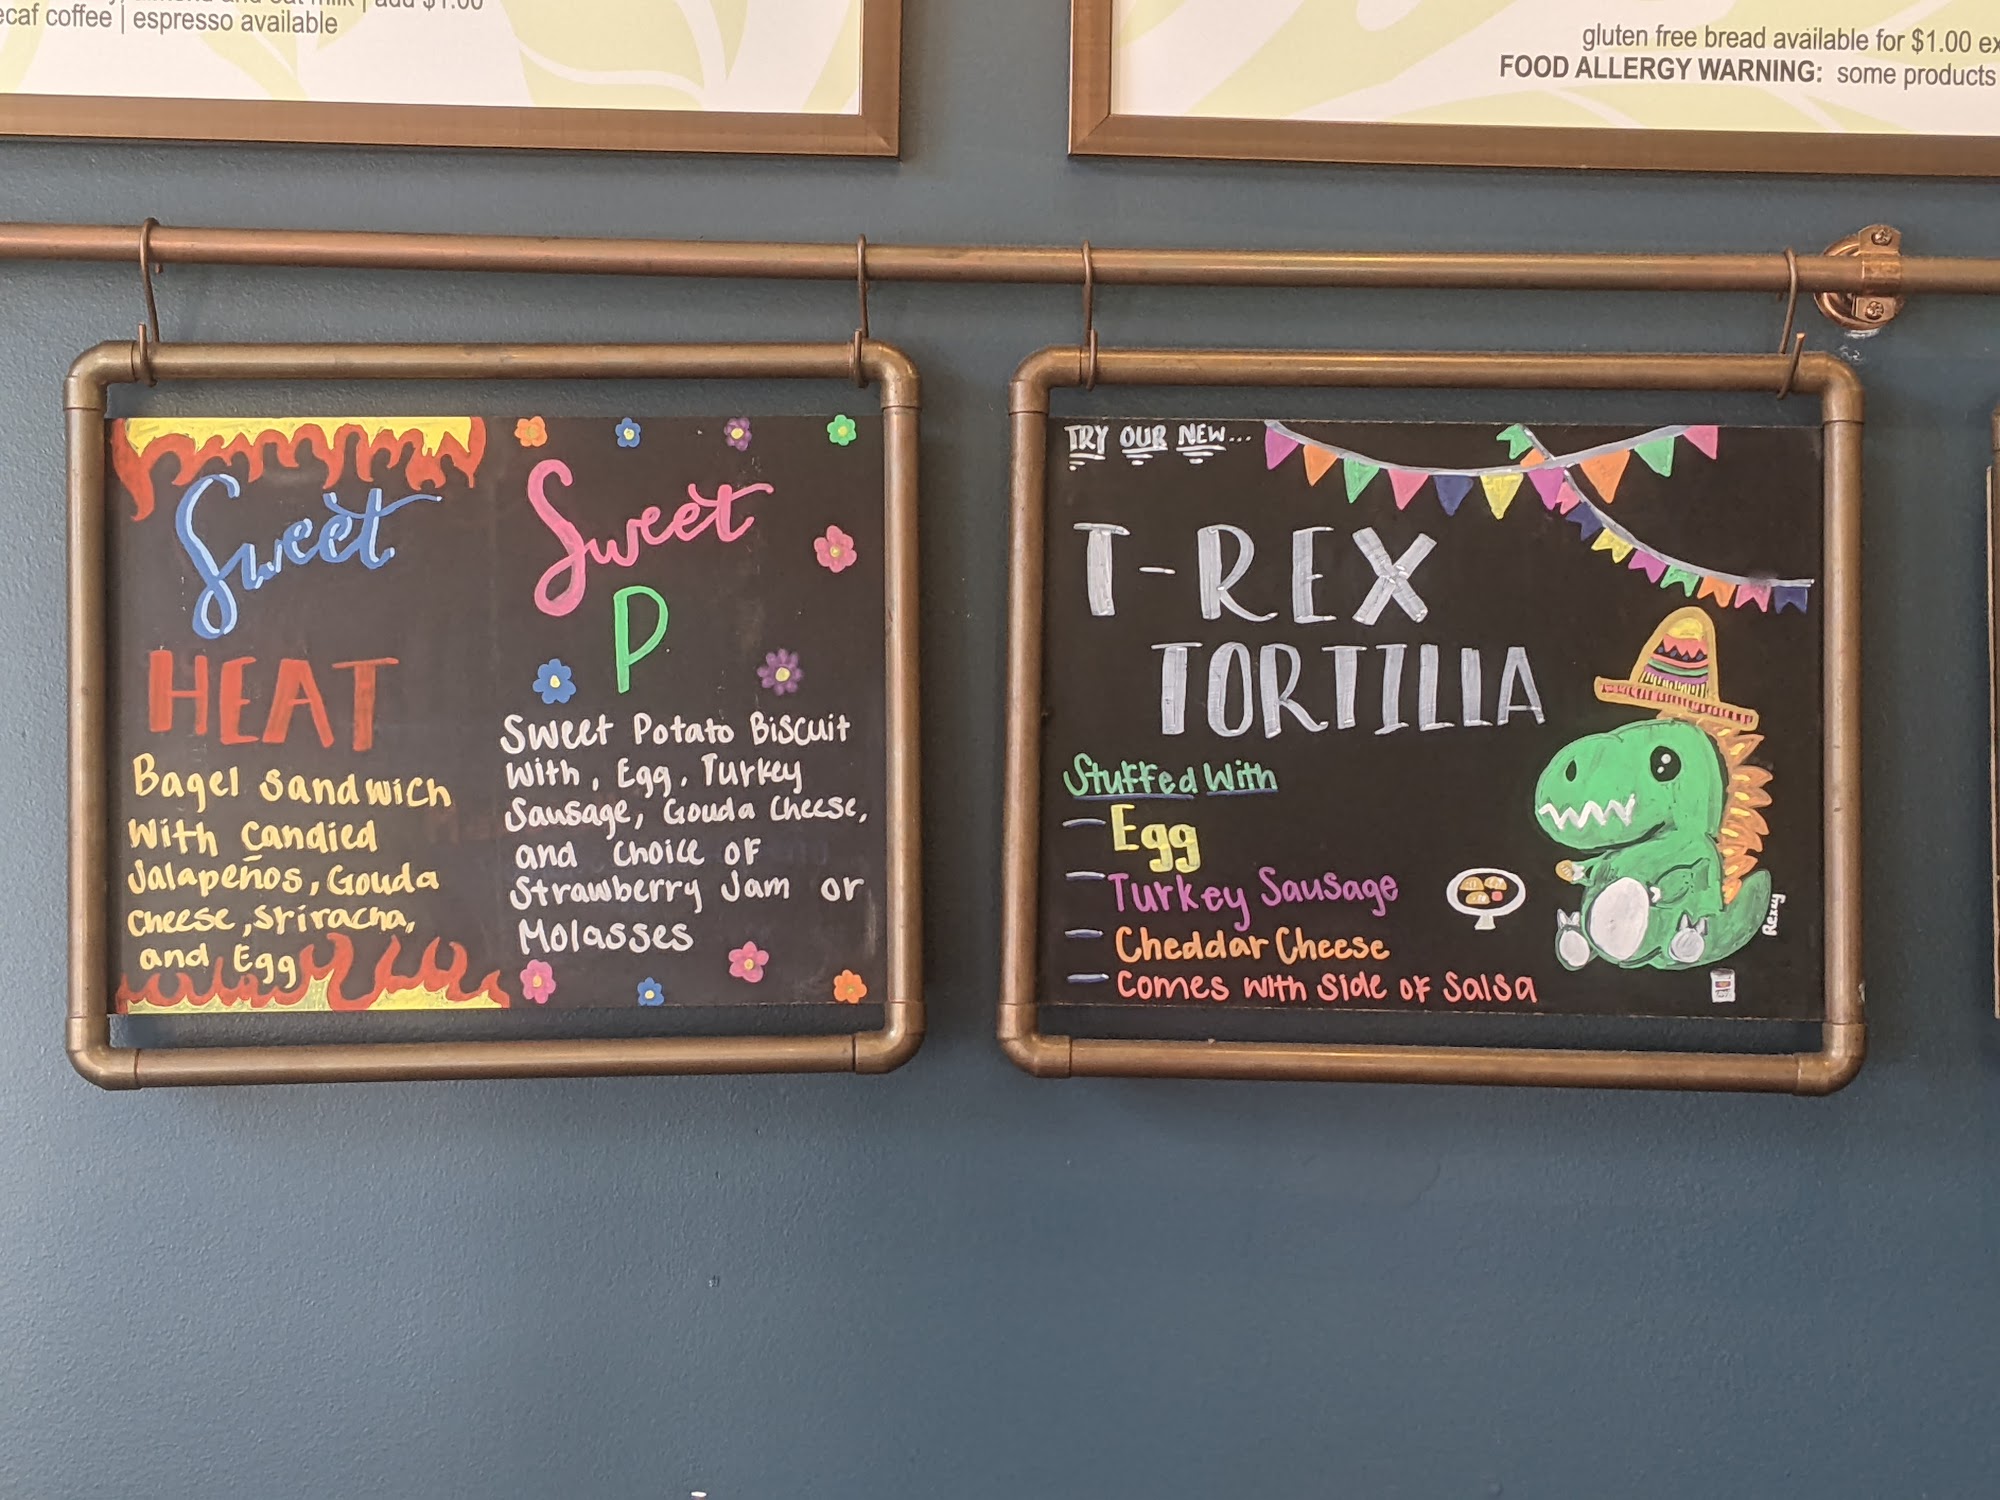 almond and oat milk | add $1.00
decaf coffee | espresso available
gluten free bread available for $1.00
FOOD ALLERGY WARNING: some products
Sweet
HEAT
Bagel Sandwich
With Candied
Jalapeños, Gouda
Cheese, Sriracha,
and Egg
Sweet
P
Sweet Potato Biscuit
With, Egg, Turkey
Sausage, Gouda Cheese,
and choice of
Strawberry Jam or
Molasses
TRY OUR NEW...
T-REX
TORTILLA
Stuffed With
- Egg
- Turkey Sausage
- Cheddar Cheese
- Comes with side of Salsa
Rexxy